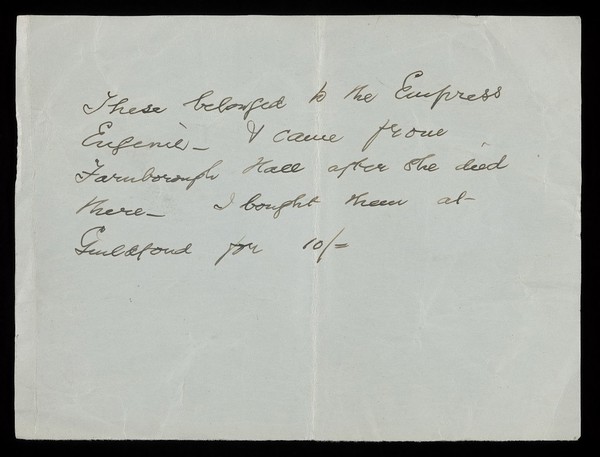 These belonged to the Empress
Eugenie - & came from
Farnborough Hall after she died
there - I bought them at -
Guildford for 10/=